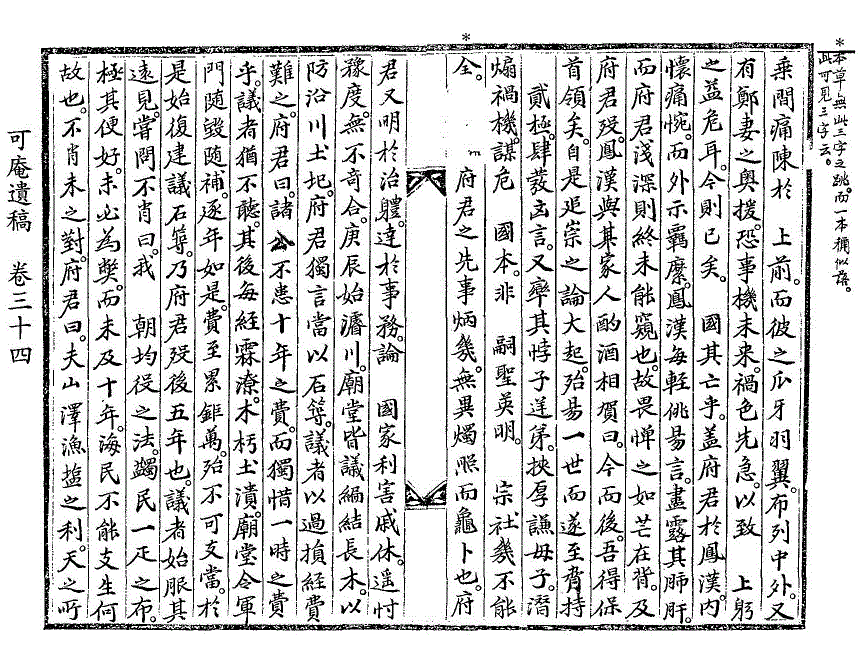 *本草無此三字之跳。而一本補似誤。
此可見三字云。
*
乘間痛陳於　上前。而彼之爪牙羽翼。布列中外。又
有鄭妻之奧援。恐事機未來。禍色先急。以致　上躬
之益危耳。今則已矣。　國其亡乎。蓋府君於鳳漢。內
懷痛惋。而外示羈縻。鳳漢每輕佻易言。盡露其肺肝。
而府君淺深則終未能窺也。故畏憚之如芒在背。及
府君歿。鳳漢與其家人酌酒相賀曰。今而後。吾得保
首領矣。自是追崇之論大起。殆易一世而遂至齊持
貳極。肆發凶言。又率其悖子逆弟。挾厚謙母子。潛
煽禍機。謀危　國本。非　嗣聖英明。　宗社幾不能
全。　府君之先事炳幾。無異燭照而龜卜也。府
君又明於治體。達於事務。論　國家利害戚休。遥忖
豫度。無不奇合。庚辰始濬川。廟堂皆議編結長木。以
防沿川土圮。府君獨言當以石築。議者以過損經費
難之。府君曰。諸公不患十年之費。而獨惜一時之費
乎。議者猶不聽。其後每經霖潦。木朽土潰。廟堂令軍
門隨毀隨補。逐年如是。費至累鉅萬。殆不可支當。於
是始復建議石築。乃府君歿後五年也。議者始服其
遠見。嘗問不肖曰。我　朝均役之法。蠲民一疋之布。
極其便好。未必為弊。而未及十年。海民不能支生何
故也。不肖未之對。府君曰。夫山澤漁盐之利。天之所
可庵遺稿　卷三十四